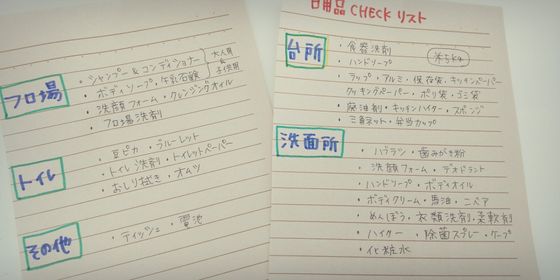 フロ場
・シャンプー & コンディショナー
・ボディソープ・牛乳石鹸
大人用
&
子供用
・洗顔フォーム・クレンジングオイル
・フロ場洗剤
トイレ
・豆ピカ・ブルーレット
・トイレ洗剤・トイレットペーパー
・おしり拭き・オムツ
その他
・ティッシュ・電池
日用品 CHECK リスト
台所
・食器洗剤
・ハンドソープ
米5kg
・ラップ・アルミ・保存袋・キッチンペーパー
クッキングペーパー・ポリ袋・ゴミ袋
・廃油剤・キッチンハイター・スポンジ
・三角ネット・弁当カップ
洗面所
・ハブラシ・歯みがき粉
洗顔フォーム・デオドラント
・ハンドソープ・ボディオイル
・ボディクリーム・馬油・ニベア
・めんぼう・衣類洗剤・柔軟剤
・ハイター・除菌スプレー・ケープ
・化粧水